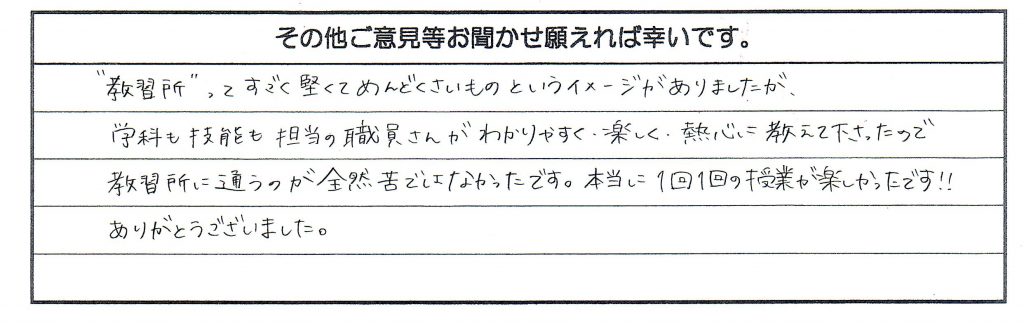 その他ご意見等お聞かせ願えれば幸いです。
"教習所"ってすごく堅くてめんどくさいものというイメージがありましたが、
学科も技能も担当の職員さんがわかりやすく・楽しく・熱心に教えて下さったので
教習所に通うのが全然苦ではなかったです。本当に1回1回の授業が楽しかったです!!
ありがとうございました。